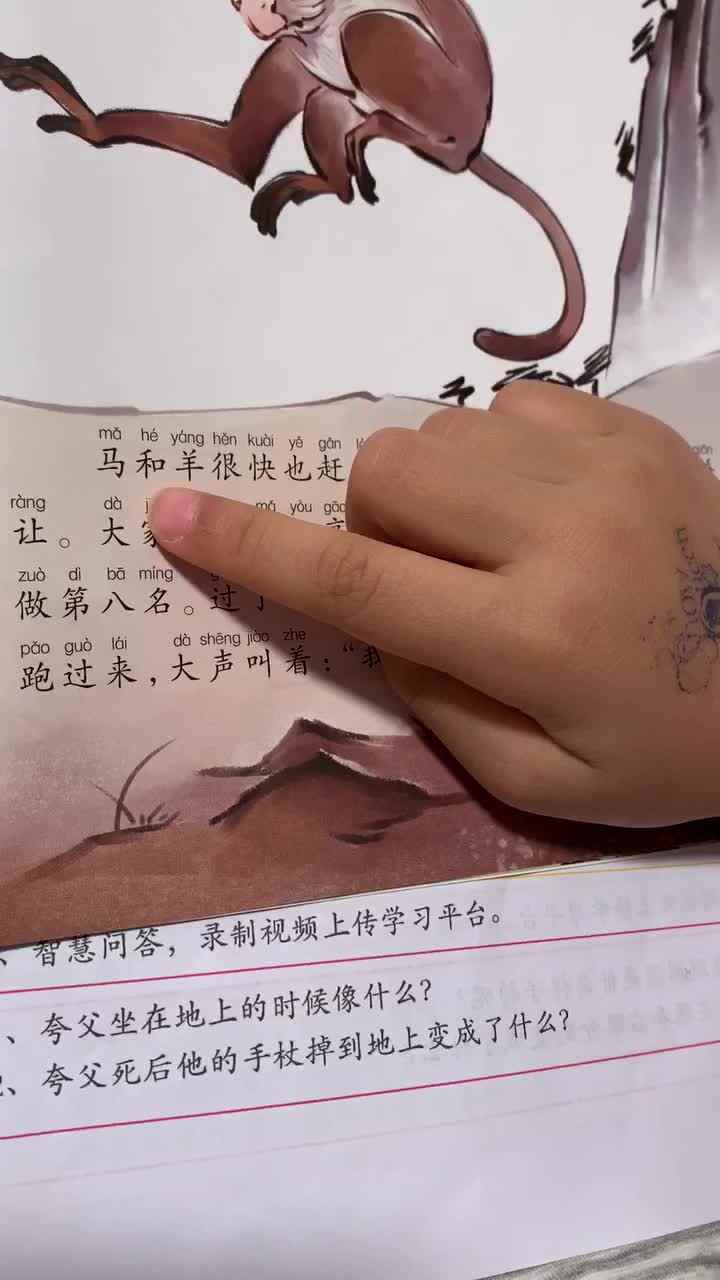 mǎ hé yáng hěn kuài yě gǎn
马和羊很快也赶
ràng dà mǎ yòu gāo
让。大家
zuò dì bā míng
做第八名。过了
pǎo guò lái dà shēng jiào zhe
跑过来，大声叫着：“我
、智慧问答，录制视频上传学习平台。
、夸父坐在地上的时候像什么？
、夸父死后他的手杖掉到地上变成了什么？